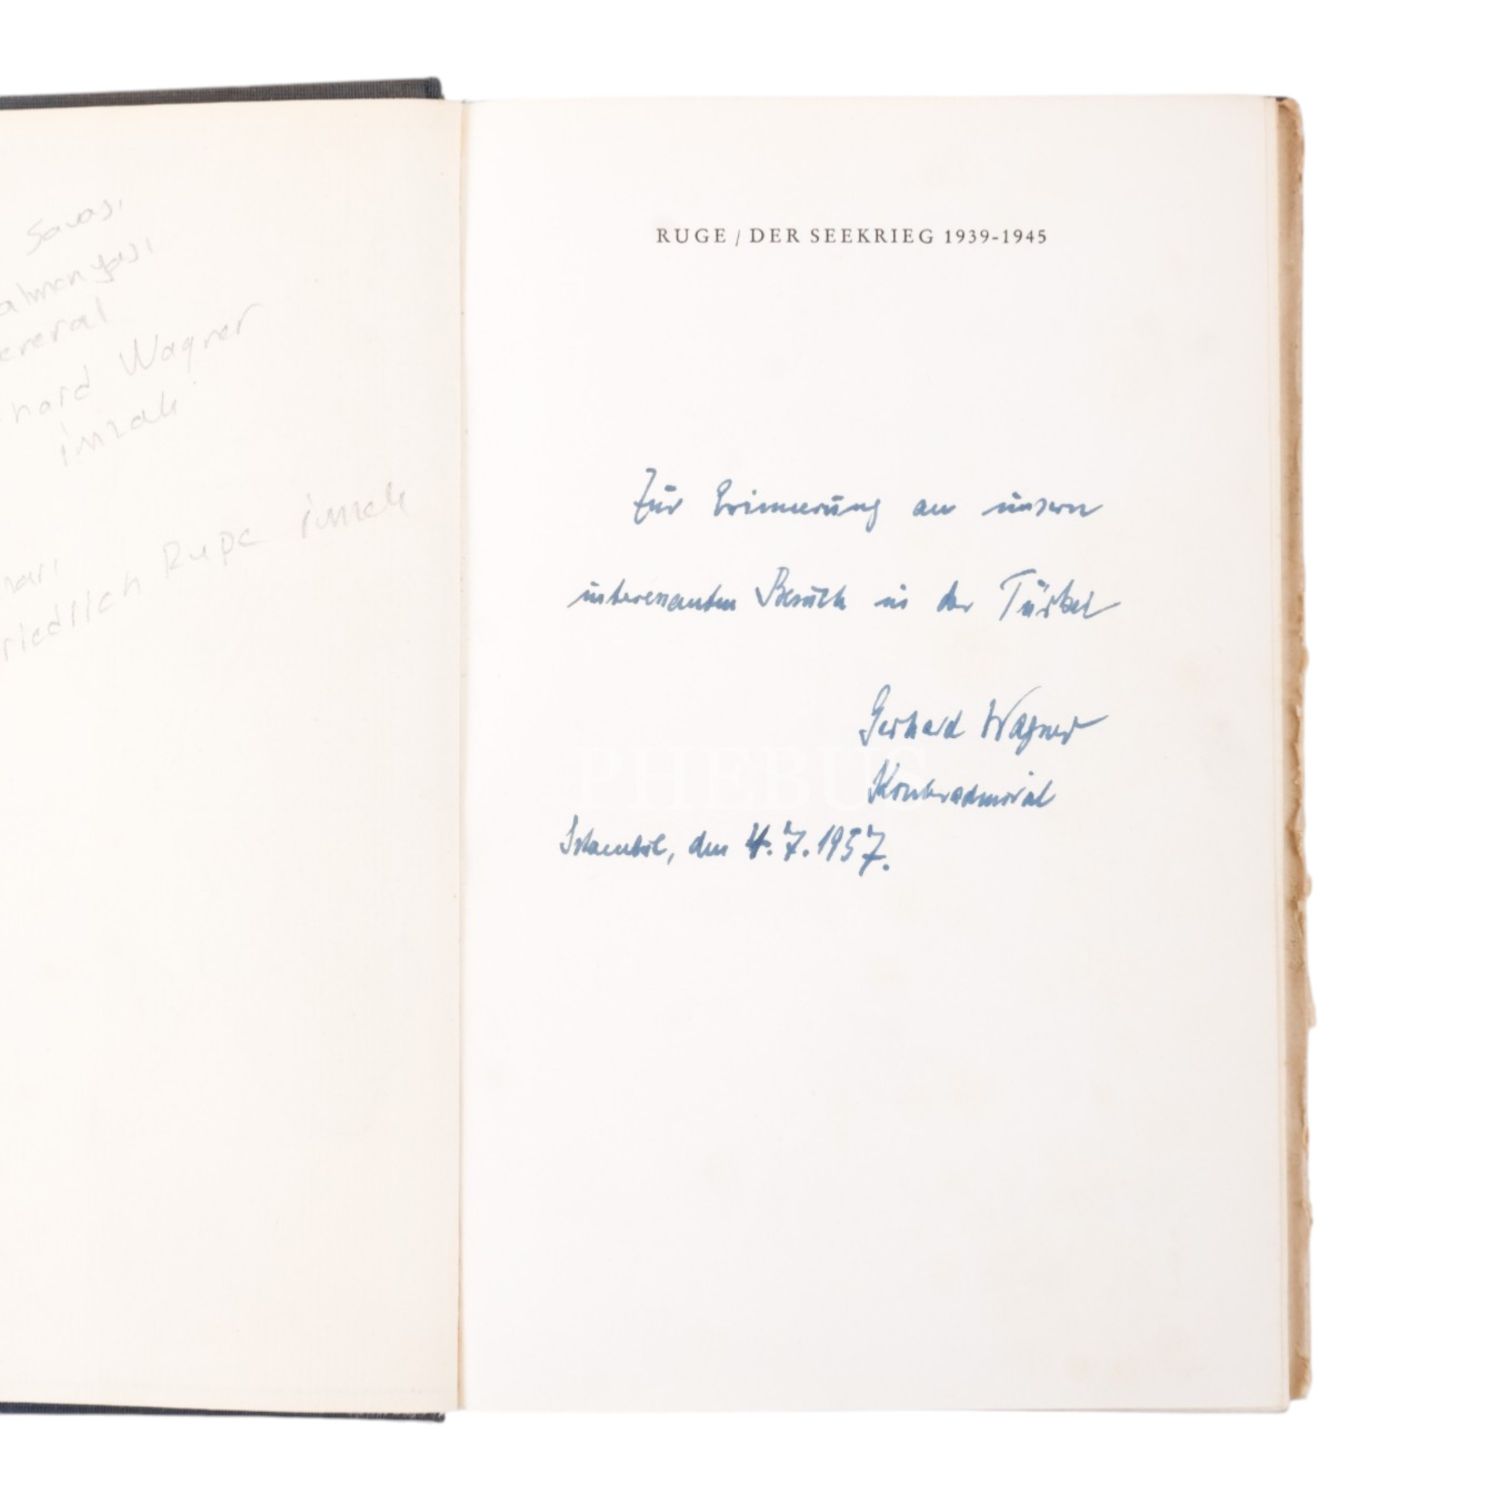 Savaşı
almanyası
eneral
hard Wagner
imzalı
riedlich Ruge imzalı
RUGE / DER SEEKRIEG 1939-1945
Zur Erinnerung an unsern
interessanten Besuch in der Türkei
Gerhard Wagner
Konteradmiral
Istambul, den 4.7.1957.
PHEBUS